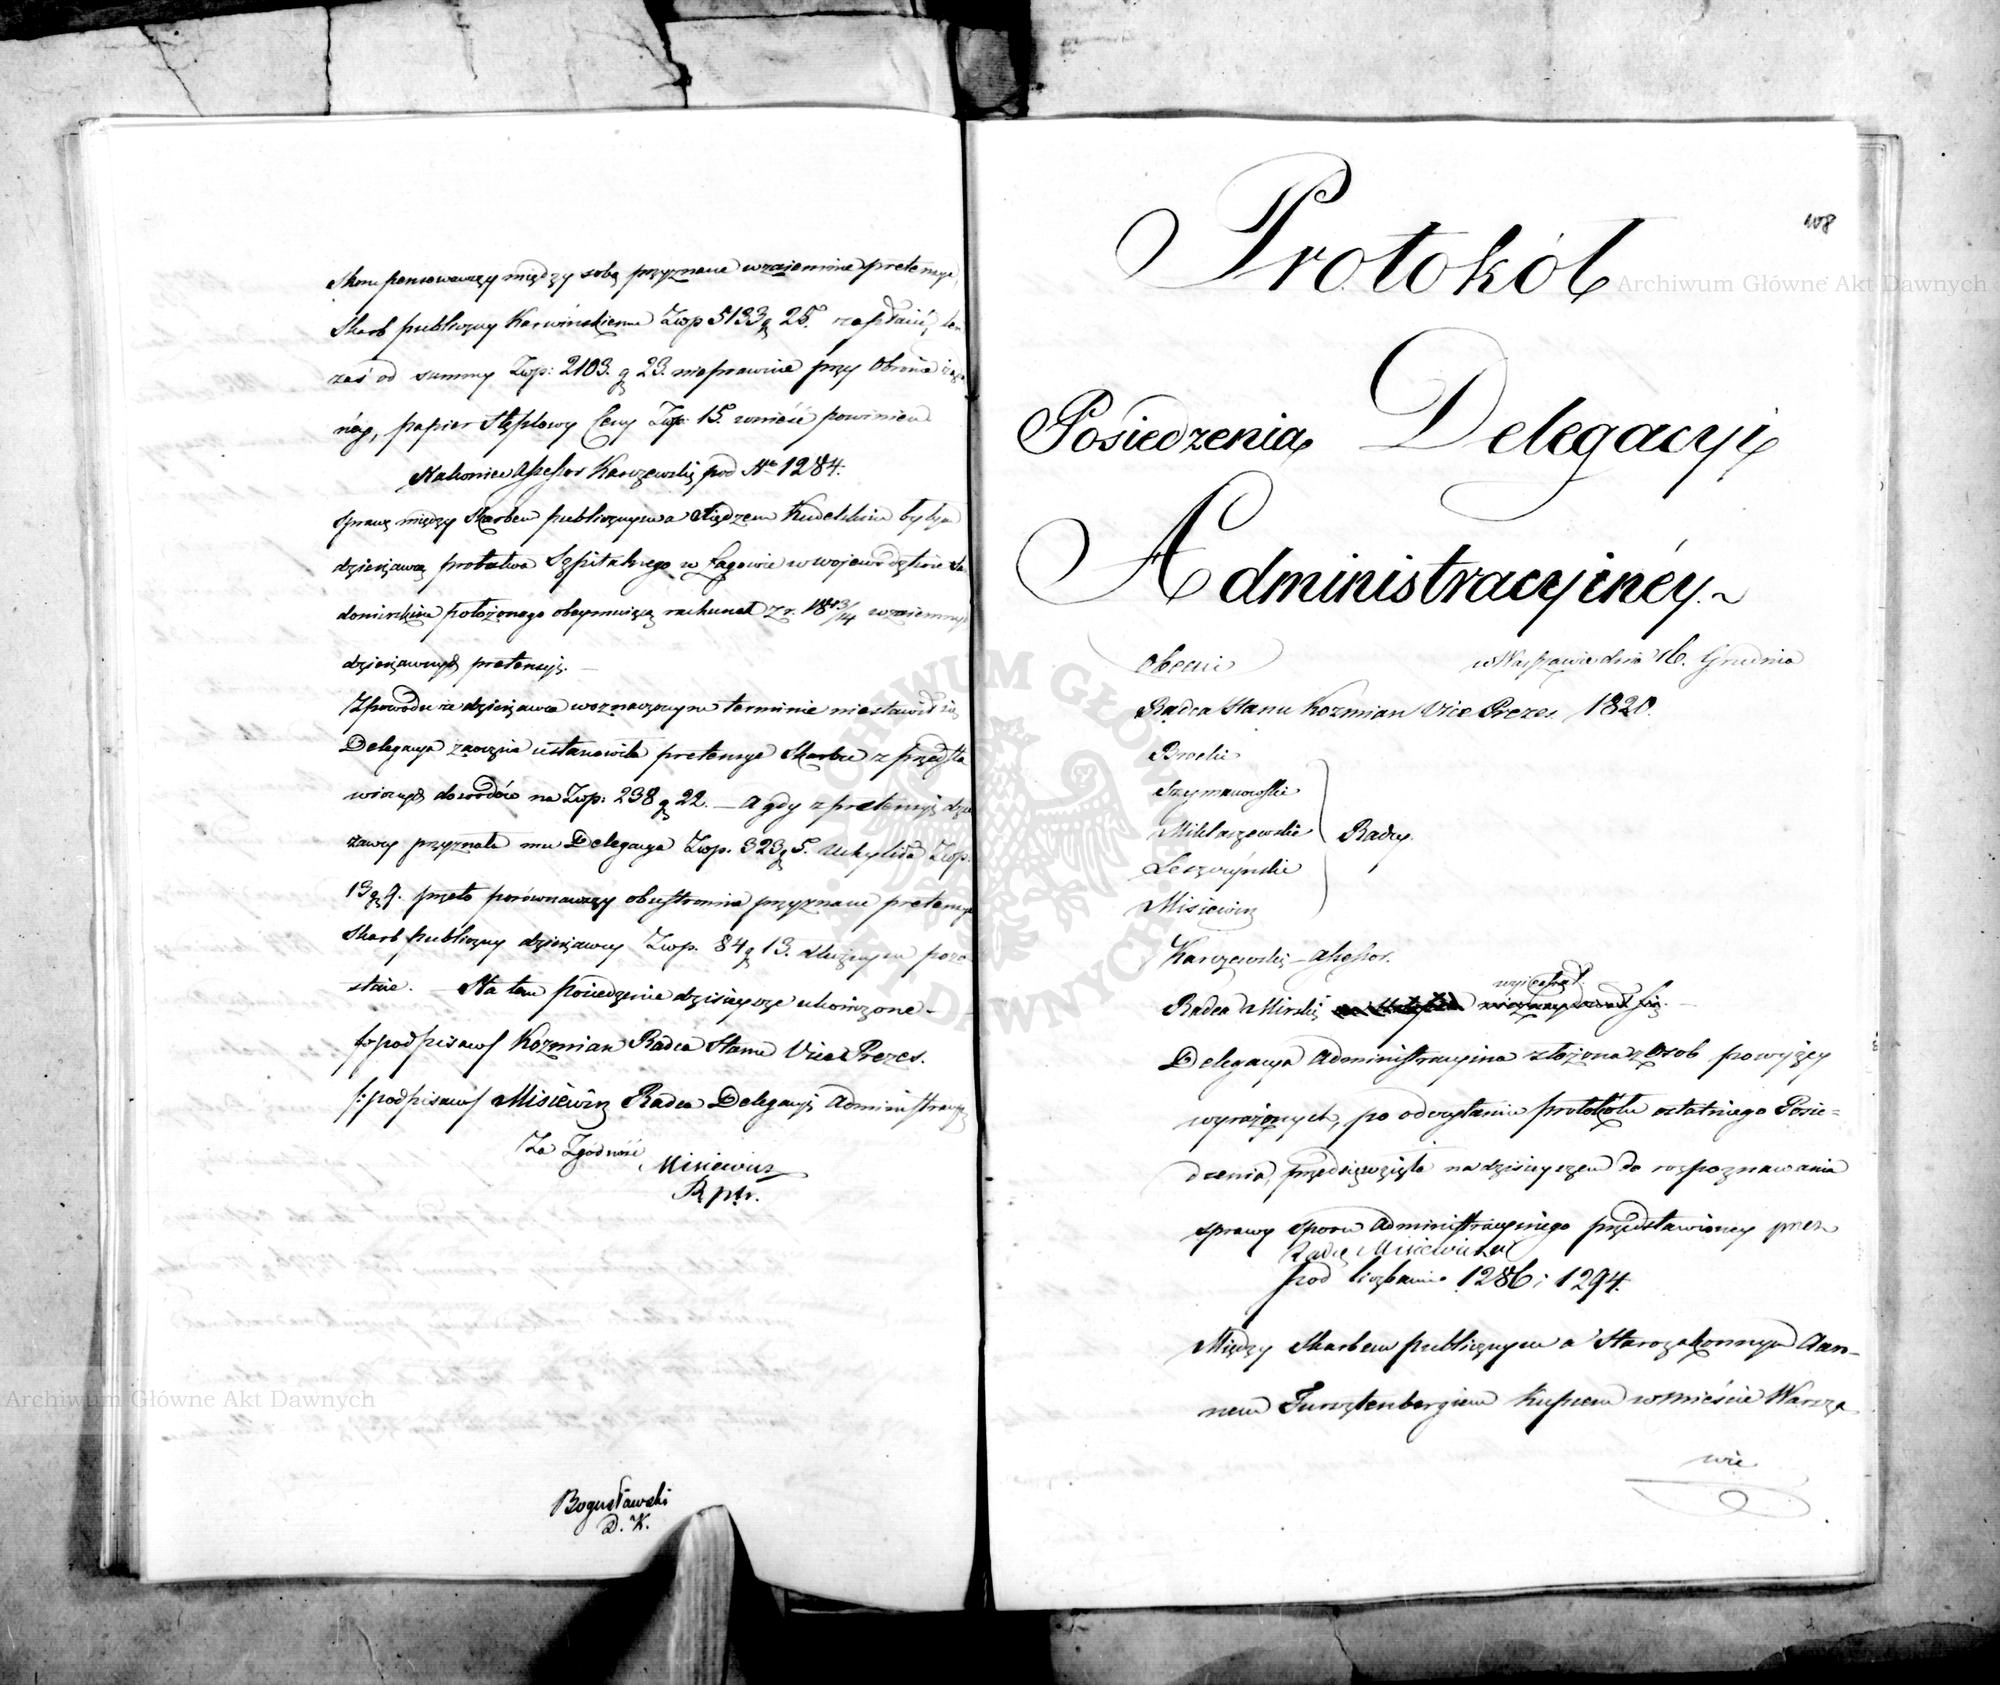 Skompensowawszy między sobą przyznane wzaiemne pretensye,
Skarb publiczny Karwińskiemu Złp 5133 g 25. zapłacić, ten
zaś od summy Złp: 2103. g 23. nieprawnie przy Obronie
papier stęplowy Ceny Złp: 15. wnieść powinien
Nakoniec Assessor Karczewski pod No 1284.
sprawę między Skarbem publicznym a Xiędzem Kudelskim byłym
dzierżawcą probostwa Szpitalnego w Łagowie w wojewodztwie San
domirskim położonego obeymuiącą rachunek z r. 1813/14 wzaiemnych
dzierżawnych pretensyi. —
Zpowodu że dzierżawca w oznaczonym terminie niestawił się
Delegacya zaocznie ustanowiła pretensye Skarbu z przedsta
wionych dowodów na Złp: 238 g 22. — A gdy z pretensyi dzier
żawcy przyznała mu Delegacya Złp. 323 g 5. uchyliła Złp.
13 g 9. przeto porównawszy obustronnie przyznane pretensye
Skarb publiczny dzierżawcy Złp. 84 g 13. dłużnym pozo
staie. — Na tem posiedzenie dzisieysze ukończone —
/:podpisano/ Kozmian Radca Stanu Vice Prezes.
/:podpisano/ Misiewicz Radca Delegacyi Administracyi
Za Zgodność
Misiewicz
R ptr.
Bogusławski
D. K.
108
Protokół
Posiedzenia Delegacyi
Administracyinéy.~
Obecni
w Warszawie dnia 16. Grudnia
Radca Stanu Kozmian Vice Prezes 1820.
Brocki
Szymanowski
Miklaszewski
Radcy.
Leszczyński
Misiewicz
Karczewski – Assessor.
wyiechał.
Radca Mirski
Delegacya Administracyina złożona z Osób powyżey
wyrażonych, po odczytaniu protokołu ostatniego Posie=
dzenia, przedsięwzięła na dzisieyszem do rozpoznawania
sprawy sporu Administracyinego przedstawioney przez
Radcę Misiewicza
pod liczbami 1286 i 1294.
Między Skarbem publicznym a Starozakonnym Aaro–
nem Fursztenbergiem Kupcem w mieście Warsza
wie
Archiwum Główne Akt Dawnych
Archiwum Główne Akt Dawnych
ARCHIWUM GŁÓWNE AKT DAWNYCH